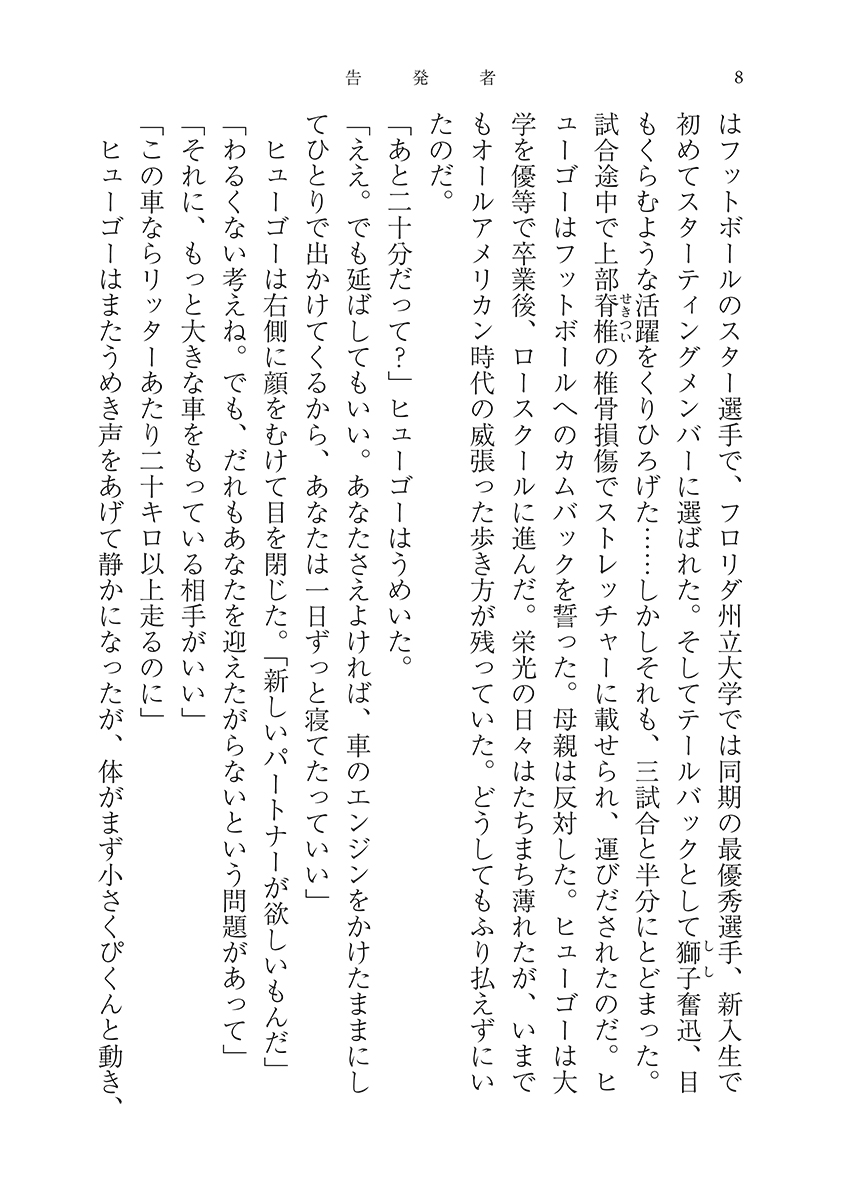 告発者
8
はフットボールのスター選手で、フロリダ州立大学では同期の最優秀選手、新入生で
初めてスターティングメンバーに選ばれた。そしてテールバックとして獅子奮迅、目
しし
もくらむような活躍をくりひろげた……しかしそれも、三試合と半分にとどまった。
試合途中で上部脊椎の椎骨損傷でストレッチャーに載せられ、運びだされたのだ。ヒ
せきつい
ューゴーはフットボールへのカムバックを誓った。母親は反対した。ヒューゴーは大
学を優等で卒業後、ロースクールに進んだ。栄光の日々はたちまち薄れたが、いまで
もオールアメリカン時代の威張った歩き方が残っていた。どうしてもふり払えずにい
たのだ。
「あと二十分だって？」ヒューゴーはうめいた。
「ええ。でも延ばしてもいい。あなたさえよければ、車のエンジンをかけたままにし
てひとりで出かけてくるから、あなたは一日ずっと寝てたっていい」
ヒューゴーは右側に顔をむけて目を閉じた。「新しいパートナーが欲しいもんだ」
「わるくない考えね。でも、だれもあなたを迎えたがらないという問題があって」
「それに、もっと大きな車をもっている相手がいい」
「この車ならリッターあたり二十キロ以上走るのに」
ヒューゴーはまたうめき声をあげて静かになったが、体がまず小さくぴくんと動き、